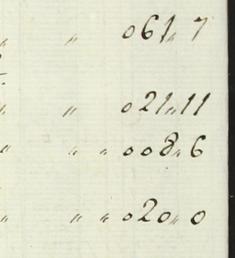 „ „ 061„ 7
„ „ 021„ 11
„ „ „ 008„ 6
„ „ „ 020„ 0